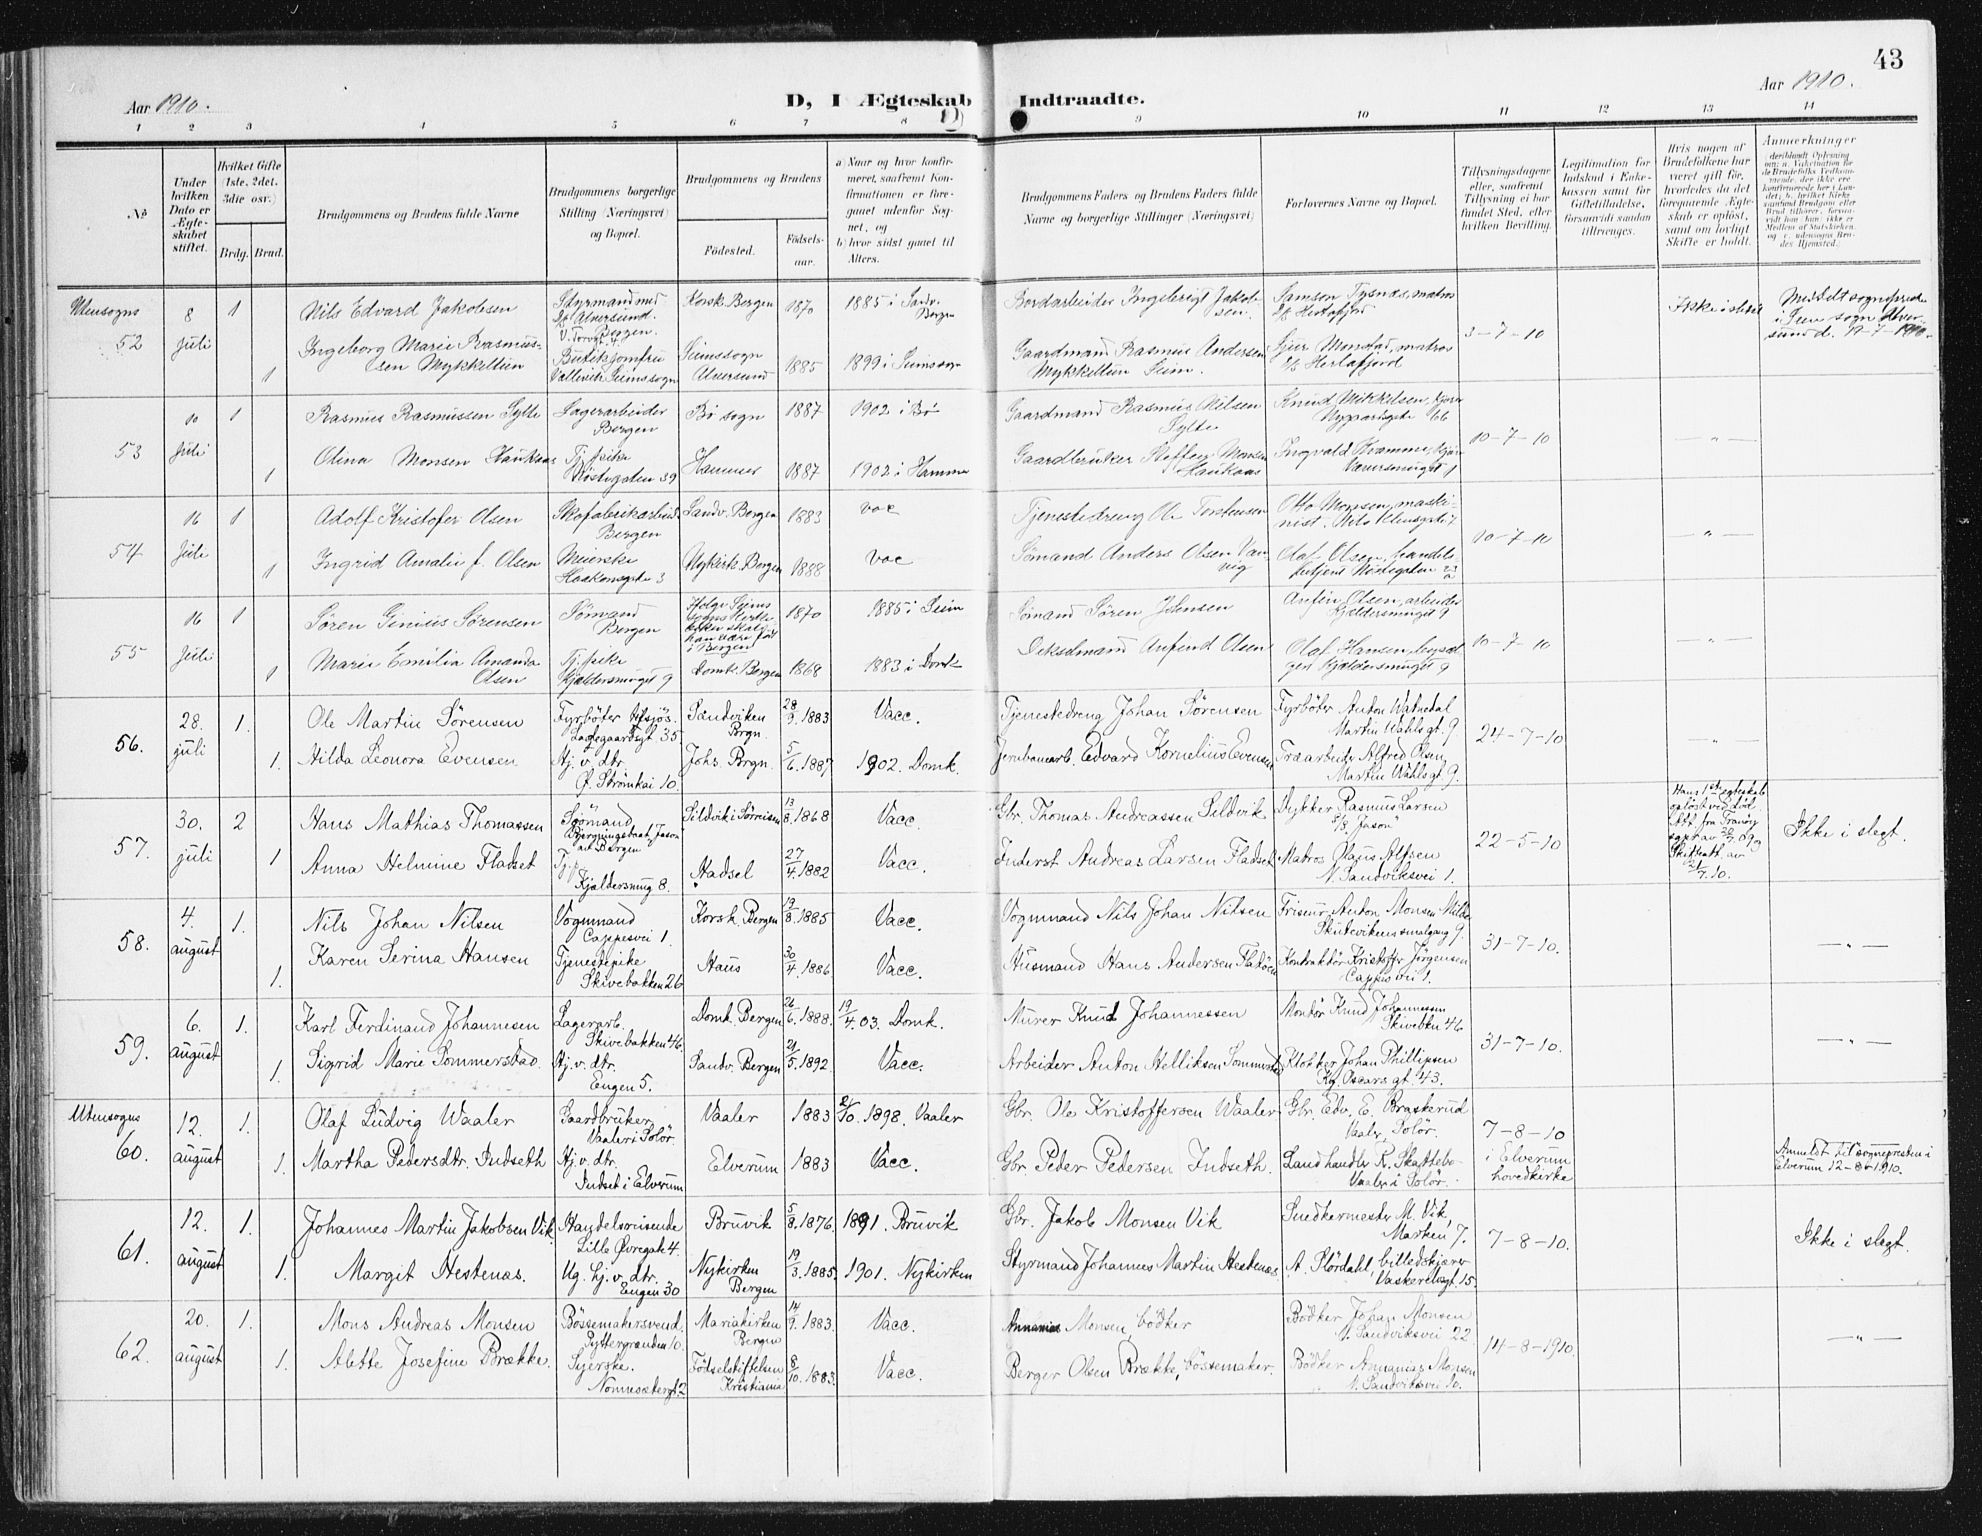 43
Aar 1910.
D, I Ægteskab Indtraadte.
Aar 1910.
1 2 3 4 5 6 7 8 9 10 11 12 13 14
No
Under hvilken Dato er Ægteskabet stiftet.
Hvilket Gifte (1ste, 2det, 3die osv.)
Brdg. Brud.
Brudgommens og Brudens fulde Navne
Brudgommens borgerlige Stilling (Næringsvei) og Bopæl.
Brudgommens og Brudens
Fødested.
Fødselsaar.
a) Naar og hvor konfirmeret, saafremt Konfirmationen er foregaaet udenfor Sognet, og
b) hvor sidst gaaet til Alters.
Brudgommens Faders og Brudens Faders fulde Navne og borgerlige Stillinger (Næringsvei)
Forlovernes Navne og Bopæl.
Tillysningsdagene eller, saafremt Tillysning ei har fundet Sted, efter hvilken Bevilling.
Legitimation for Indskud i Enkekassen samt for Giftetilladelse, forsaavidt saadan tiltrænges.
Hvis nogen af Brudefolkene har været gift før, hvorledes da det foregaaende Ægteskab er opløst, samt om lovligt Skifte er holdt.
Anmærkninger
Utensogns 52
8 Juli 1
Nils Edvard Jakobsen
Styrmand med S/s Alversund. V. Torvgt. 4 Bergen.
Korsk. Bergen 1870 1885 i Sandv. Bergen
Bordarbeider Ingebrigt Jakobsen.
Samson Tysnes, matros S/s Herlafjord
3-7-10
Ikke i slegt
1
Ingeborg Marie Rasmussen Mykkeltun
Butikjomfru
Seimssogn Alversund 1885 1899 i Seimssogn
Gaardmand Rasmus Andersen Mykkeltun Seim.
Sjur Monstad, matros S/s Herlafjord
53
10 Juli 1
Rasmus Rasmussen Sylte
Lagerarbeider Bergen
Bø sogn 1887 1902 i Bø
Gaardmand Rasmus Nilsen Sylte
Knud Mikkelsen, Nygaardsgate 66
10-7-10
— „ —
1
Olina Monsen Haukaas
Tj. pike Nøstegaten 39
Hammer 1887 1902 i Hammer
Gaardbruker Steffen Monsen Haukaas
Ingvald Kvamme,
54
16 Juli 1
Adolf Kristofer Olsen
Skofabrikarbeid. Bergen
Sandv. Bergen 1883 vac
Tjenestedreng Ole Torstensen
Otto Monsen, maskinist.
10-7-10
— „ —
1
Ingrid Amalie f. Olsen
Meierske Haakonsgate 3
Nykirk. Bergen 1888 vac
Sømand Anders Olsen
Olaf Olsen, handelsbetjent Nøstegaten 23
55
16 Juli 1
Søren Sinius Sørensen
Sømand Bergen
1870 1885 i Seim
Sømand Søren Johnsen
Anfin Olsen, arbeider Kjeldersmuget 9
10-7-10
— „ —
1
Marie Emilia Amanda Olsen
Tj. pike Kjeldersmuget 9
Domk. Bergen 1868 1883 i Domk
Dæksdmand Anfind Olsen
Olaf Hansen, Kjældersmuget 9
56.
28. juli 1.
Ole Martin Sørensen
Fyrbøter tilsjøs. Ladegaardsgt 35.
Sandviken Brgn. 28/9. 1883 Vacc.
Tjenestedreng Johan Sørensen
Fyrbøter Anton Watnedal Martin Wahlsgt. 9.
24-7-10
— „ —
1.
Hilda Leonora Evensen
Hj. v. dtr. Ø. Strømkai 10.
Johs. Brgn. 5/6. 1887 1902. Domk.
Jernbanearb. Edvard Kornelius Evensen
Træarbeider Alfred Olsen, Martin Wahlsgt. 9.
57.
30. juli 2
Hans Mathias Thomassen
Sjømand Bjergningsbaat „Jason“ af Bergen
Sildvik i Sørreisen 13/8. 1868 Vacc.
Gbr. Thomas Andreassen Sildvik
Dykker Rasmus Larsen S/S. „Jason“
22-5-10
Hans 1ste egteskab opløst ved død.
Ikke i slegt.
1
Anna Helmine Fladset
Tj. p. Kjeldersmug 8.
Hadsel 27/4. 1882 Vacc.
Inderst Andreas Larsen Fladset
Matros Olaus Alfsen N. Sandviksvei 1.
58.
4. august 1.
Nils Johan Nilsen
Vognmand Cappesvei 1.
Korsk. Bergen 19/8. 1885 Vacc.
Vognmand Nils Johan Nilsen
Friseur Anton Monsen Milde Skuteviksensmalgang 9.
31-7-10.
— „ —
1.
Karen Serina Hansen
Tjenestepike Skivebakken 26
Haus 30/4. 1886 Vacc.
Husmand Hans Andersen Flatøen
Kontraktør Kristoffer Jørgensen Cappesvei 1.
59.
6. august 1.
Karl Ferdinand Johannesen
Lagerarb. Skivebakken 46.
Domk. Bergen 26/6. 1888. 19/4. 03. Domk.
Murer Knud Johannessen
Montør Knud Johannessen Skivebkn 46.
31-7-10.
— „ —
1.
Sigrid Marie Sommerstad.
Hj. v. dtr. Engen 5.
Sandv. Bergen 21/5. 1892 Vacc.
Arbeider Anton Helliksen Sommerstad
Klokker Johan Phillipsen Kg. Oscars gt. 43.
Utensogns 60.
12. august 1.
Olaf Ludvig Waaler
Gaardbruker, Vaaler i Solør.
Vaaler 1883 2/10. 1898. Vaaler
Gbr. Ole Kristoffersen Waaler
Gbr. Edv. E. Braskerud Vaaler, Solør.
7-8-10 i Elverum hovedkirke
1.
Martha Pedersdtr. Indseth
Hj. v. dtr. Indset i Elverum
Elverum 1883 Vacc.
Gbr Peder Pedersen Indseth.
Landhandler R. Skattebo Vaaler i Solør.
Anmeldt til sognepresten i Elverum 12-8-1910.
61.
12. august 1.
Johannes Martin Jakobsen Vik.
Handelsreisende Lille Øvregate 4.
Bruvik 5/8. 1876. 1891. Bruvik
Gbr. Jakob Monsen Vik
Snedkermester M. Vik, Marken 7.
7-8-10.
Ikke i slegt.
1.
Margit Hestenæs.
Ug. hj. v. dtr. Engen 30
Nykirken Bergen 19/3. 1885. 1901. Nykirken
Styrmand Johannes Martin Hestenæs
A. Størdahl, billedskjærer Vaskerelvsgt. 15.
62.
20. august 1.
Mons Andreas Monsen
Bøssemakersvend, Pyttergrænden 6.
Mariakirken Bergen 14/9. 1883. Vacc.
Annanias Monsen, bødker
Bødker Johan Monsen N. Sandviksvei 22.
14-8-1910.
— „ —
1.
Alette Josefine Brække.
Syerske. Nonnesætergt 2
Fødselstiftelsen Kristiania 8/10. 1883. Vacc.
Berger Olsen Brække, bøssemaker.
Bødker Annanias Monsen N. Sandviksvei 10.